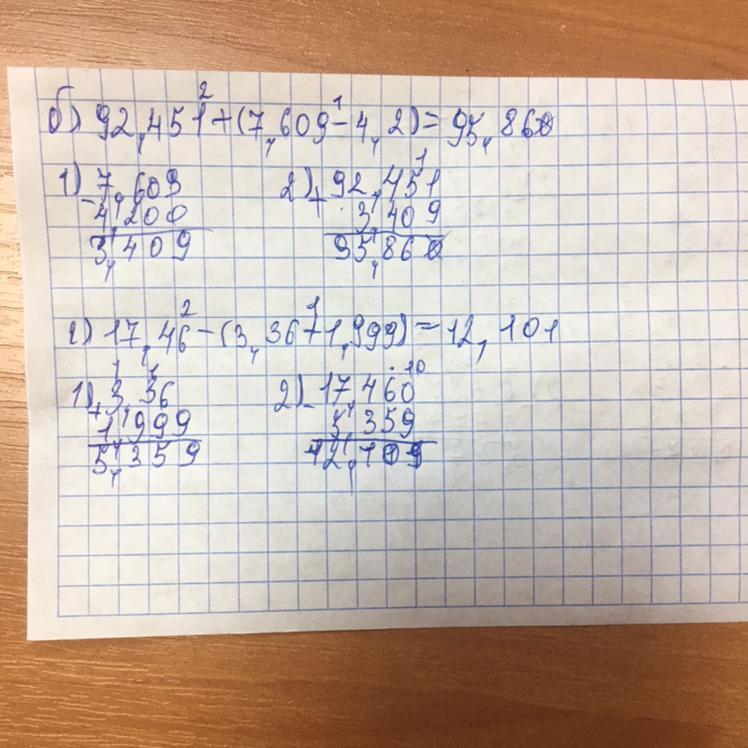 б) 92,451+(7,609-4,2)=95,860
2 1
1) 7,609 2) 92,451
- 4,200 + 3,409
3,409 95,860
г) 17,46-(3,36+1,999)=12,101
2 1
1) 3,36 2) 17,460
+ 1,999 - 5,359
5,359 12,109